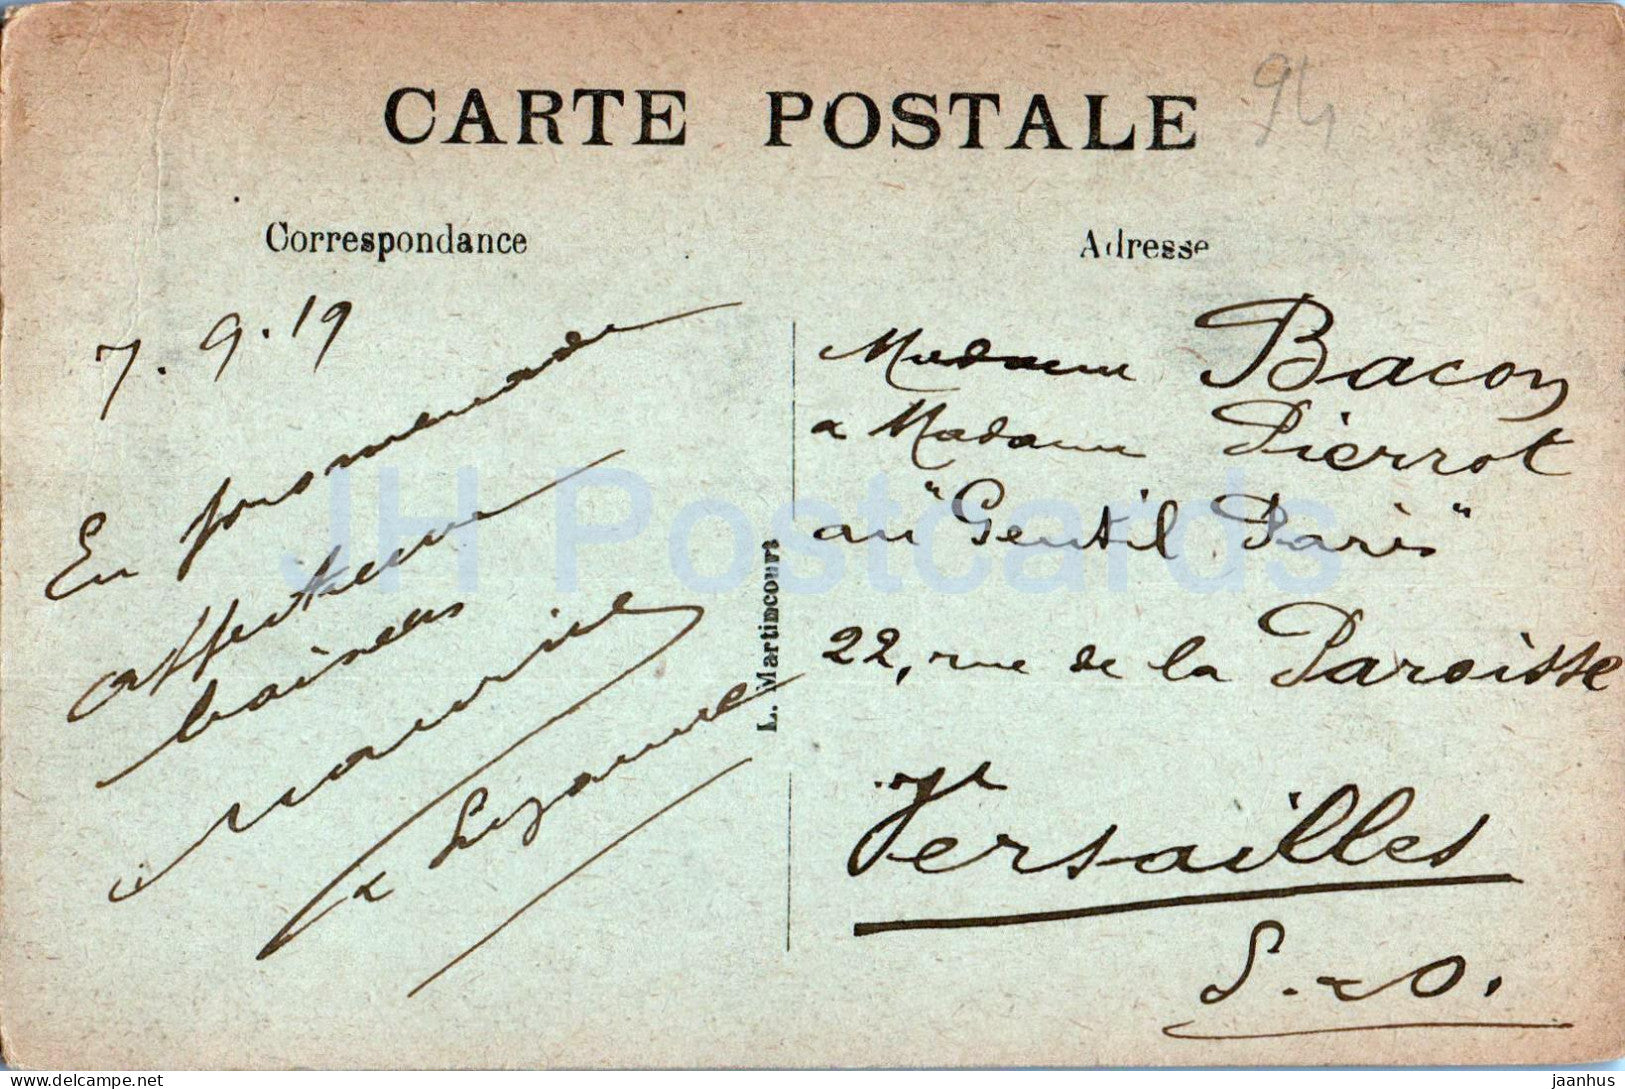 CARTE POSTALE
94
Correspondance
Adresse
7.9.19
En promenade
affectueux
baisers
Maurice
& Suzanne
L. Martimcourt
Madame Bacon
& Madame Pierrot
au "Gentil Paris"
22, rue de la Paroisse
Versailles
S.-&-O.
JH Postcards
delcampe.net
jaanhus